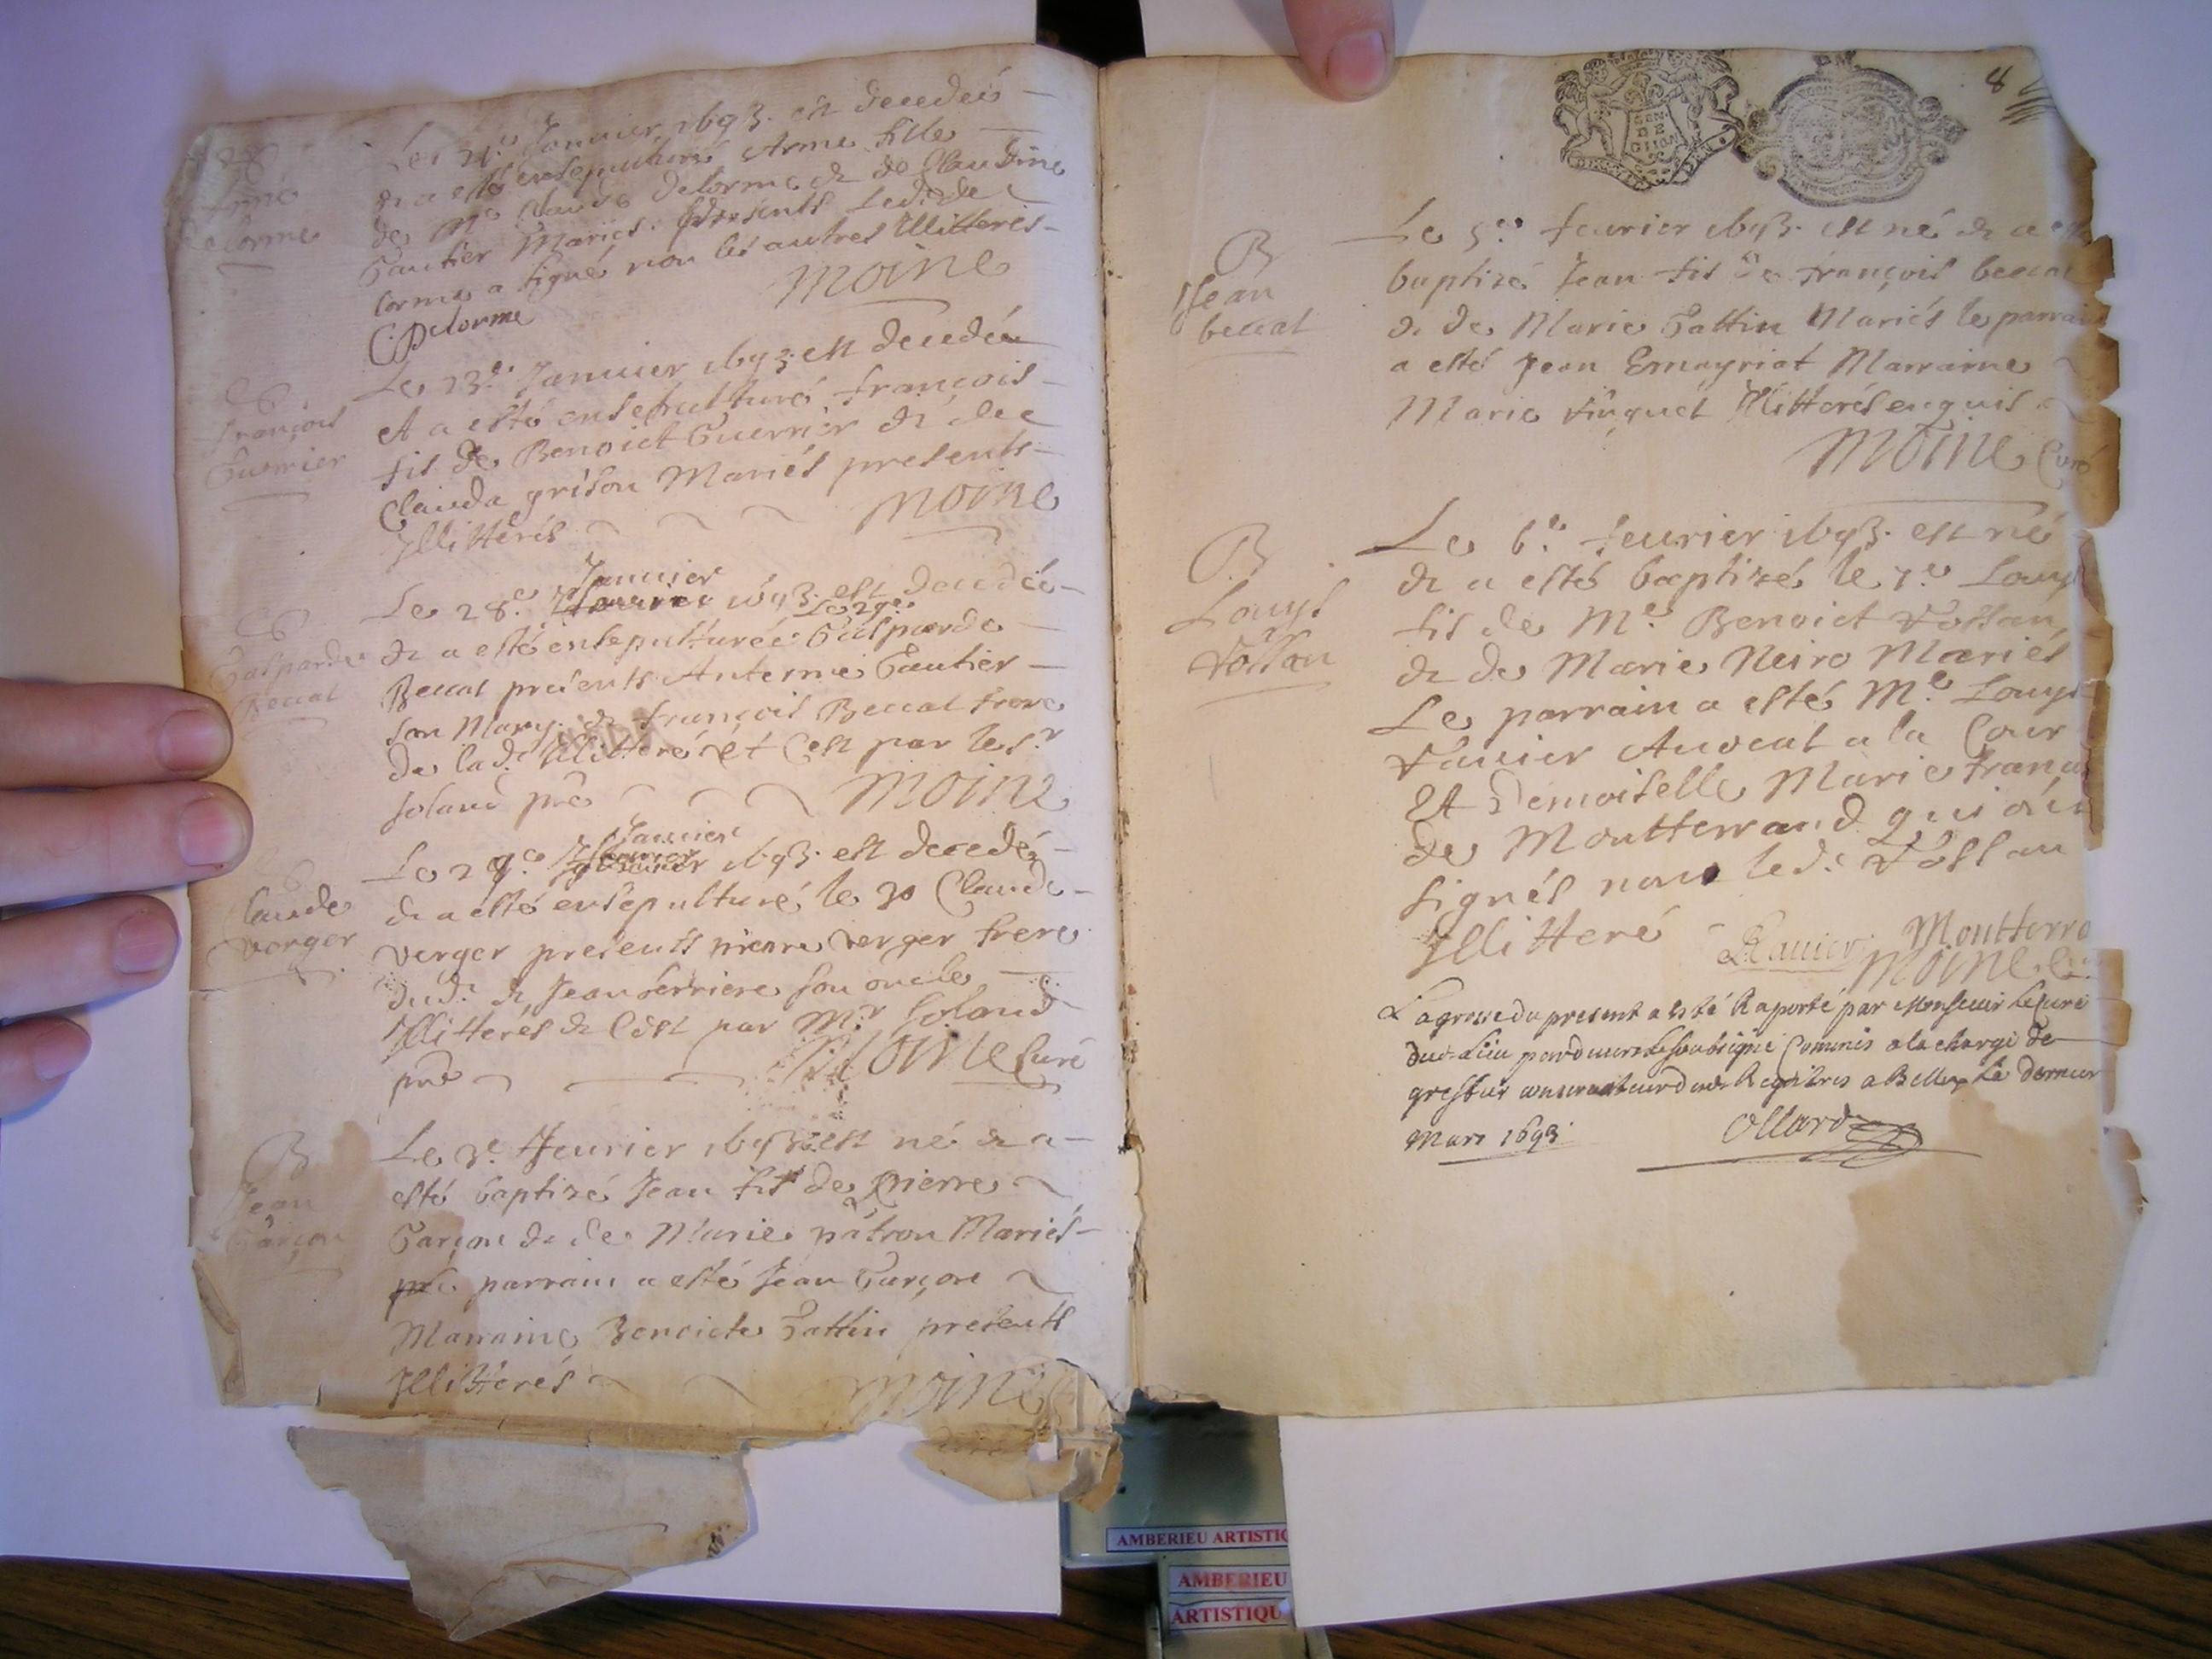 Anne
delorme
Le 21e Januier 1693. est decedeé
& a esté ensepulturé Anne fille
de Me Claude Delorme & de Claudine
Gautier Mariés. presents Led. de
lorme a signé non les autres Illitterés
Moine
C Delorme
François
Guerrier
Le 23e Januier 1693 est decedé
Et a esté ensepulturé françois
fis de Benoict Guerrier & de
Clauda grison Mariés presents
Illitterés
Moine
Gasparde
Beccat
Januier
Le 28e 1693. est decedée
Le 29e
& a esté ensepulturée Gasparde
Beccat presents Anterme Gautier
son Mary & françois Beccat frere
de lad. Illitterés et C'est par le sr
soland pre
Moine
Claude
verger
Januier
Le 29e 1693. est decedé
& a esté ensepulturé le 30 Claude
verger presents pierre verger frere
dud. & Jean ferriere son oncle
Illitterés & C'est par Mr. Soland
pre
Moine Curé
B
Jean
Garçon
Le 3e feurier 1693 est né & a
esté baptizé Jean fis de Pierre
Garçon & de Marie patron Mariés
parrain a esté Jean Garçon
Marraine Benoicte Gattin presents
Illitterés
Moine
8
GEN
DE
DIION
B
Jean
beccat
Le 5e feurier 1693. est né & a
baptizé Jean fis de françois
& de Marie Gattin Mariés le parrain
a esté Jean Emayriat Marraine
Marie Illitterés enquis
Moine Curé
B
Louys
Vossan
Le 6e feurier 1693. est né
& a esté baptizé le 7e Louys
fis de Me Benoict Vossan
& de Marie Neiro Mariés
Le parrain a esté Me Louys
Vanier Auocat a la Cour
Et Demoiselle Marie
de Montterrand qui
signés non led. Vossan
Illitteré
Montterra
Moine
La grosse du present a esté Raporté par Monsieur le Curé
dud. Lieu pardeuant le soubsigné Commis a la charge de
greffier conseruateur desd. Registres a Belley Le dernier
Mars 1693
Ollard
AMBERIEU ARTISTIQ
AMBERIEU
ARTISTIQU